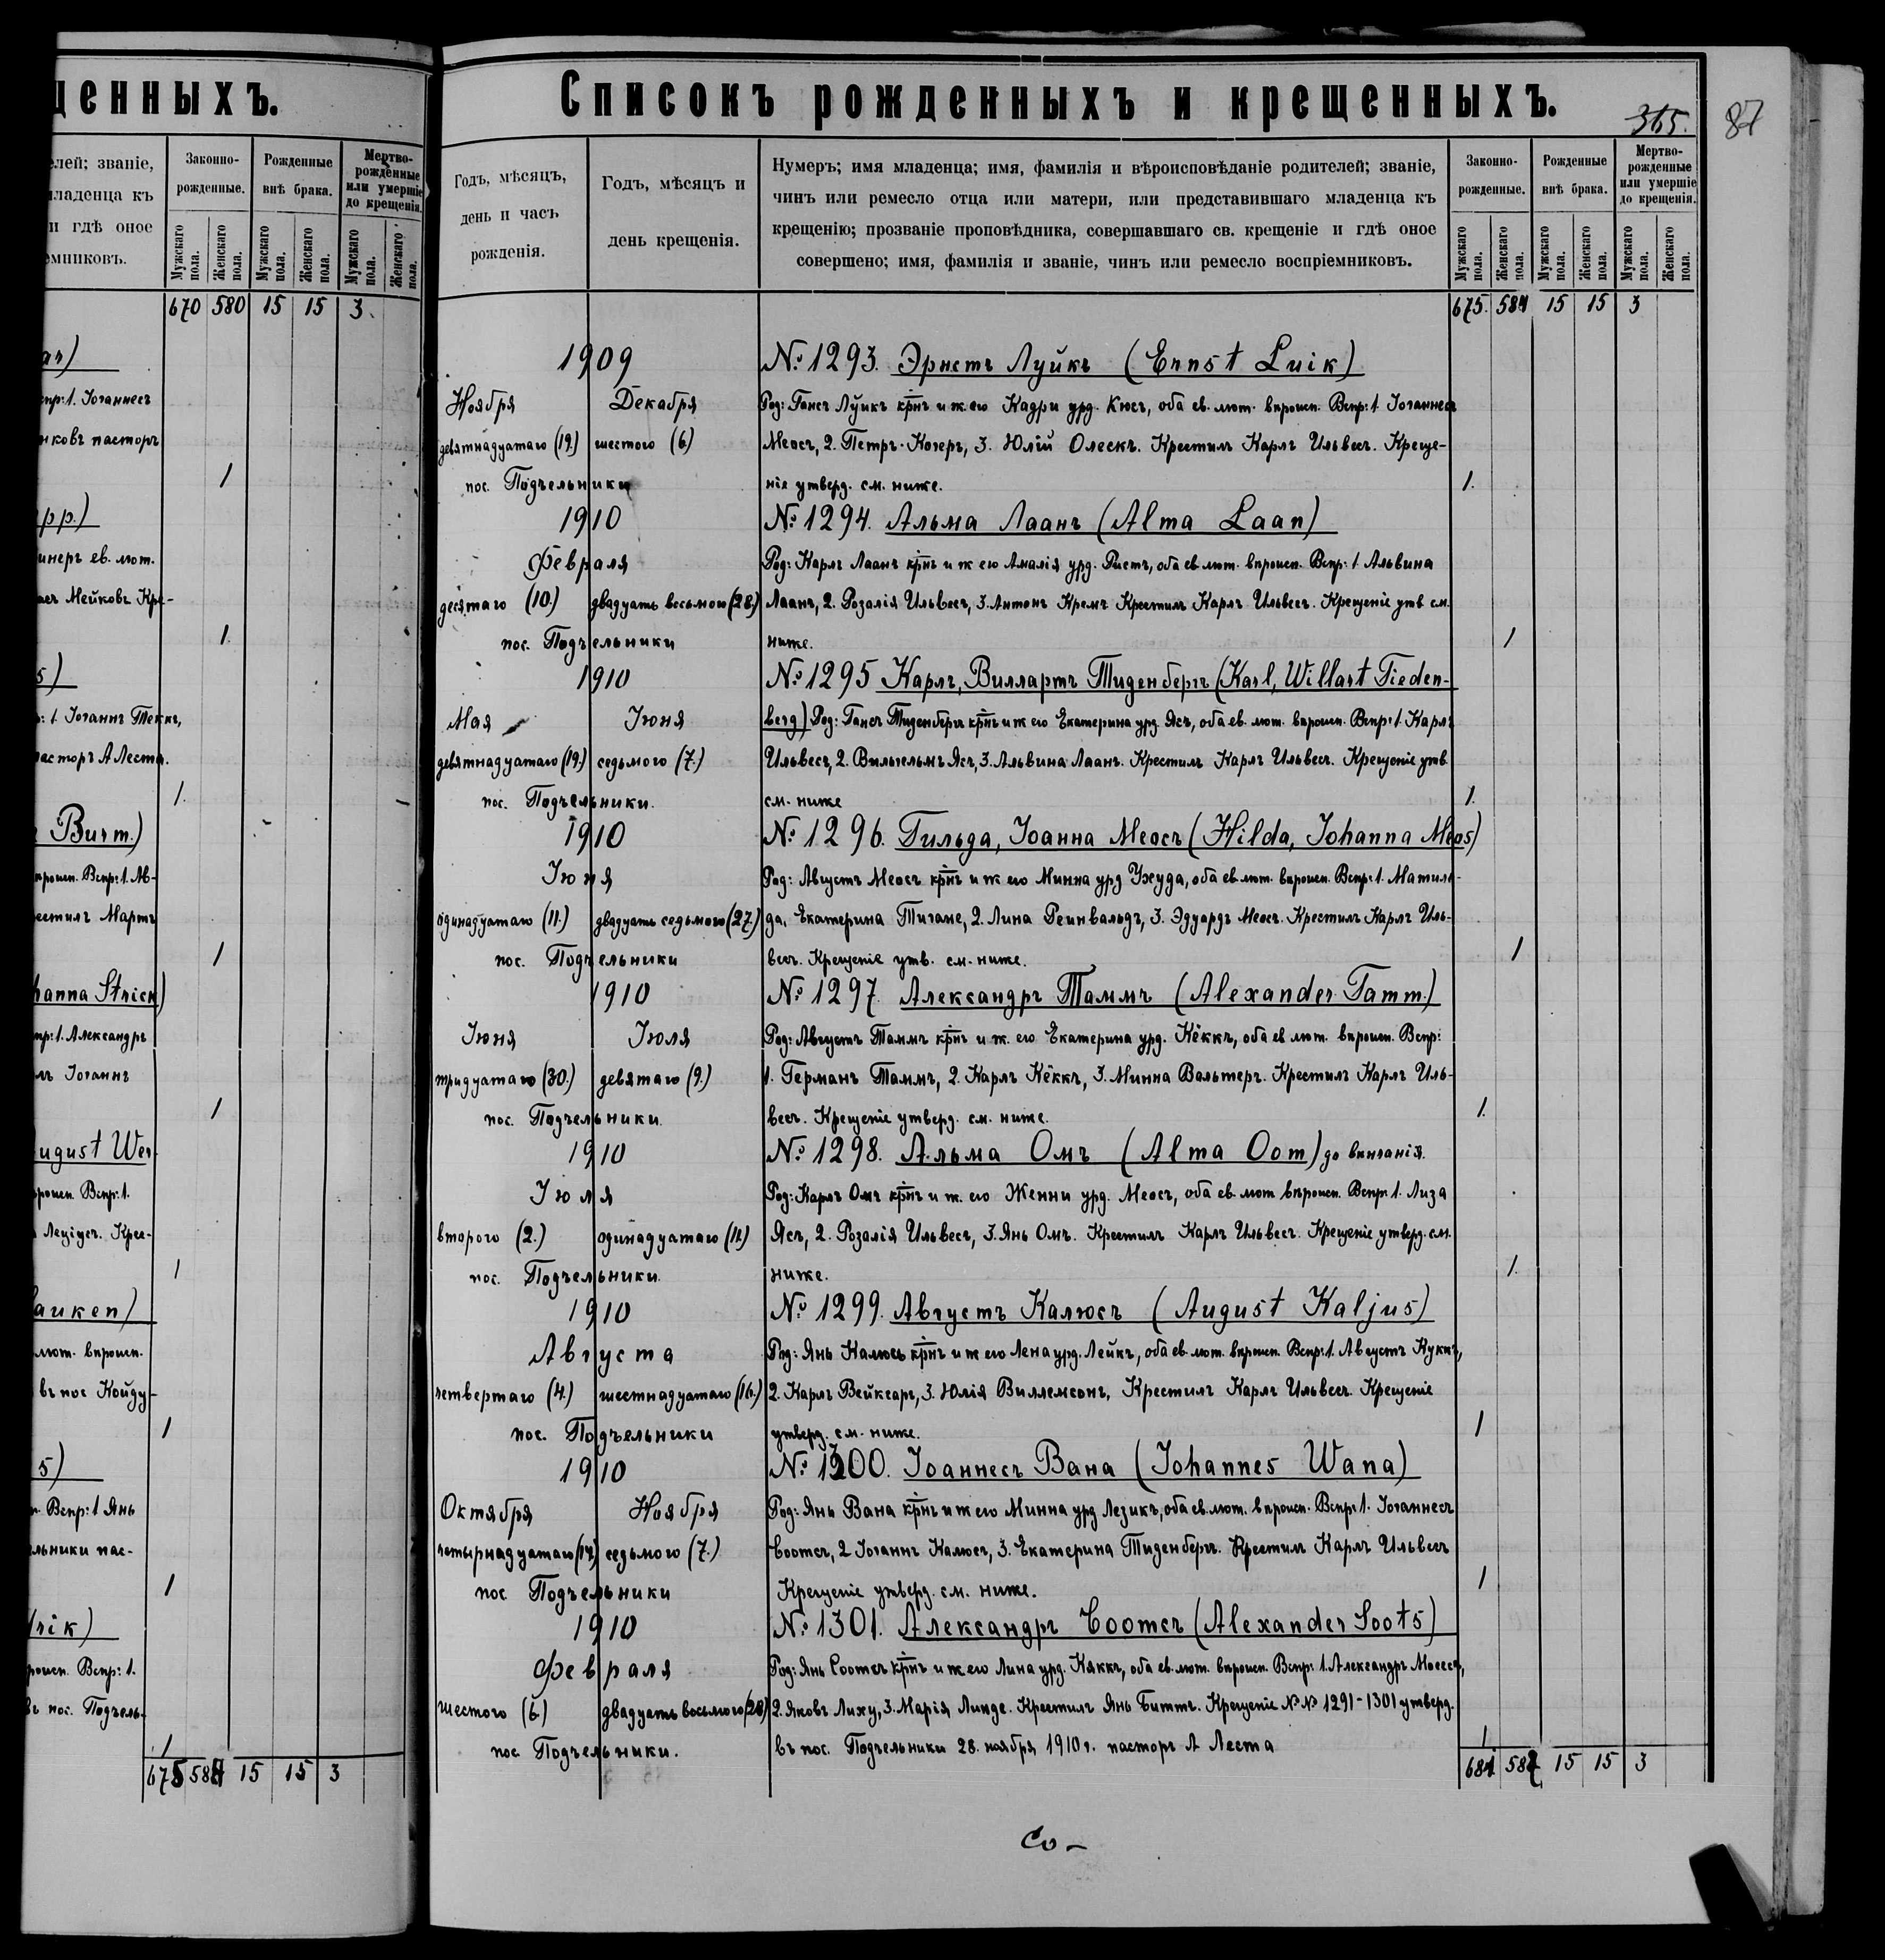 щенныхъ.
елей; званіе,
младенца къ
и гдѣ оное
емниковъ.
Законно-
рожденные.
Рожденные
внѣ брака.
Мертво-
рожденные
или умершіе
до крещенія.
Мужскаго пола.
Женскаго пола.
Мужскаго пола.
Женскаго пола.
Мужскаго пола.
Женскаго пола.
670 580 15 15 3
пр: 1. Іоганнесъ
пасторъ
1
pp.)
инеръ ев. лют.
Мейковъ Кре-
1.
s)
: 1. Іоганнъ Теккъ,
пасторъ А Леста.
1.
Burm.)
проис. Вспр: 1. Ав-
рестилъ Мартъ
1
hanna Strick)
пр: 1. Александръ
лъ Іоганнъ
1
August Wer-
проис. Вспр: 1.
Лецісъ. Крес-
1
auken)
лют. впроисп.
въ пос Койду-
1
s)
Вспр: 1 Янь
ельники пас-
1
rik)
роисп. Вспр: 1.
въ пос. Подъель-
1
675 584 15 15 3
Списокъ рожденныхъ и крещенныхъ.
365.
87
Годъ, мѣсяцъ,
день и часъ
рожденія.
Годъ, мѣсяцъ и
день крещенія.
Нумеръ; имя младенца; имя, фамилія и вѣроисповѣданіе родителей; званіе,
чинъ или ремесло отца или матери, или представившаго младенца къ
крещенію; прозваніе проповѣдника, совершавшаго св. крещеніе и гдѣ оное
совершено; имя, фамилія и званіе, чинъ или ремесло воспріемниковъ.
Законно-
рожденные.
Рожденные
внѣ брака.
Мертво-
рожденные
или умершіе
до крещенія.
Мужскаго пола.
Женскаго пола.
Мужскаго пола.
Женскаго пола.
Мужскаго пола.
Женскаго пола.
675. 584 15 15 3
1909 №1293. Эрнстъ Луйкъ (Ernst Luik)
Ноября Декабря Род: Гансъ Луикъ крнъ и ж. его Кадри урд. Кюсъ, оба ев. лют. впроисп. Вспр: 1. Іоганнесъ
девятнадцатаго (19.) шестого (6) Меосъ, 2. Петръ Когеръ, 3. Юлій Олескъ. Крестилъ Карлъ Ильвесъ. Креще-
пос. Подъельники ніе утверд. см. ниже. 1.
1910 №1294. Альма Лаанъ (Alma Laan)
Февраля Род: Карлъ Лаанъ крнъ и ж его Амалія урд. Ристъ, оба ев лют. впроисп. Вспр: 1 Альвина
десятаго (10.) двадцать восьмого (28.) Лаанъ, 2. Розалія Ильвесъ, 3. Антонъ Кремъ Крестилъ Карлъ Ильвесъ. Крещеніе утв см.
пос. Подъельники ниже. 1
1910 №1295 Карлъ, Вилларtъ Тиденбергъ (Karl, Willart Tieden-
Мая Іюня berg) Род: Гансъ Тиденбергъ крнъ и ж его Екатерина урд. Ясъ, оба ев. лют. впроисп. Вспр: 1. Карлъ
девятнадцатаго (19.) седьмого (7.) Ильвесъ, 2. Вильгельмъ Ясъ, 3. Альвина Лаанъ. Крестилъ Карлъ Ильвесъ. Крещеніе утв
пос. Подъельники. см. ниже 1.
1910 №1296. Гильда, Іоанна Меосъ (Hilda, Johanna Meos)
Іюня Род: Августъ Меосъ крнъ и ж его Минна урд Ужуда, оба ев лют. впроисп. Вспр: 1. Матиль-
одинадцатаго (11.) двадцать седьмого (27.) да, Екатерина Тигане, 2. Лина Реинвальдъ, 3. Эдуардъ Меосъ. Крестилъ Карлъ Иль-
пос. Подъельники весъ. Крещеніе утв. см. ниже. 1
1910 №1297. Александръ Таммъ (Alexander Tamm.)
Іюня Іюля Род: Августъ Таммъ крнъ и ж. его Екатерина урд. Кёккъ, оба ев лют. впроисп. Вспр:
тридцатаго (30.) девятаго (9.) 1. Германъ Таммъ, 2. Карлъ Кёккъ, 3. Минна Вальтеръ. Крестилъ Карлъ Иль-
пос. Подъельники. весъ. Крещеніе утверд. см. ниже. 1.
1910 №1298. Альма Омъ (Alma Oom) до внчанія.
Іюля Род: Карлъ Омъ крнъ и ж. его Женни урд. Меосъ, оба ев. лют впроисп. Вспр: 1. Лиза
второго (2.) одинадцатаго (11.) Ясъ, 2. Розалія Ильвесъ, 3. Янь Омъ. Крестилъ Карлъ Ильвесъ. Крещеніе утверд. см.
пос. Подъельники. ниже. 1.
1910 №1299. Августъ Калюсъ (August Kaljus)
Августа Род: Янь Калюсъ крнъ и ж его Лена урд. Лейкъ, оба ев. лют. впроисп. Вспр: 1. Августъ Куккъ,
четвертаго (4.) шестнадцатаго (16.) 2. Карлъ Вейксаръ, 3. Юлія Виллемсонъ, Крестилъ Карлъ Ильвесъ. Крещеніе
пос. Подъельники утверд. см. ниже. 1
1910 №1300. Іоаннесъ Вана (Johannes Wana)
Октября Ноября Род: Янь Вана крнъ и ж его Минна урд Лезикъ, оба ев. лют. впроисп. Вспр: 1. Іоганнесъ
четырнадцатаго (14.) седьмого (7.) Соотсъ, 2 Іоганнъ Калюсъ, 3. Екатерина Тиденбергъ. Крестилъ Карлъ Ильвесъ
пос Подъельники Крещеніе утверд. см. ниже. 1
1910 №1301. Александръ Соотсъ (Alexander Soots)
Февраля Род: Янь Соотсъ крнъ и ж его Лина урд. Кяккъ, оба ев. лют. впроисп. Вспр: 1. Александръ Моесся,
шестого (6.) двадцать восьмого (28) 2. Яковъ Лиху, 3. Марія Линде. Крестилъ Янь Биттъ. Крещеніе №№ 1291-1301 утверд.
пос. Подъельники. въ пос. Подъельники 28. ноября 1910 г. пасторъ А Леста 1
681 587 15 15 3
Со-